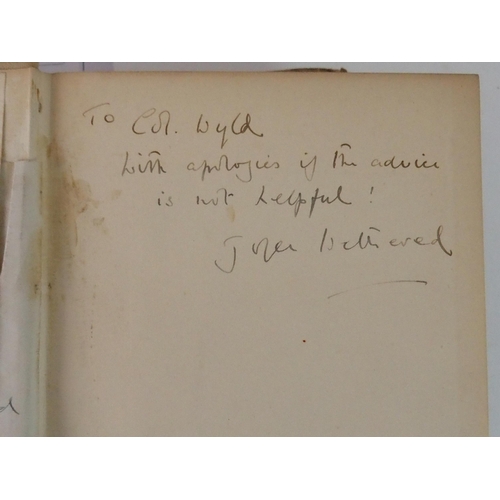 To Col. Wyld
With apologies if the advice
is not helpful!
Joyce Wethered
d